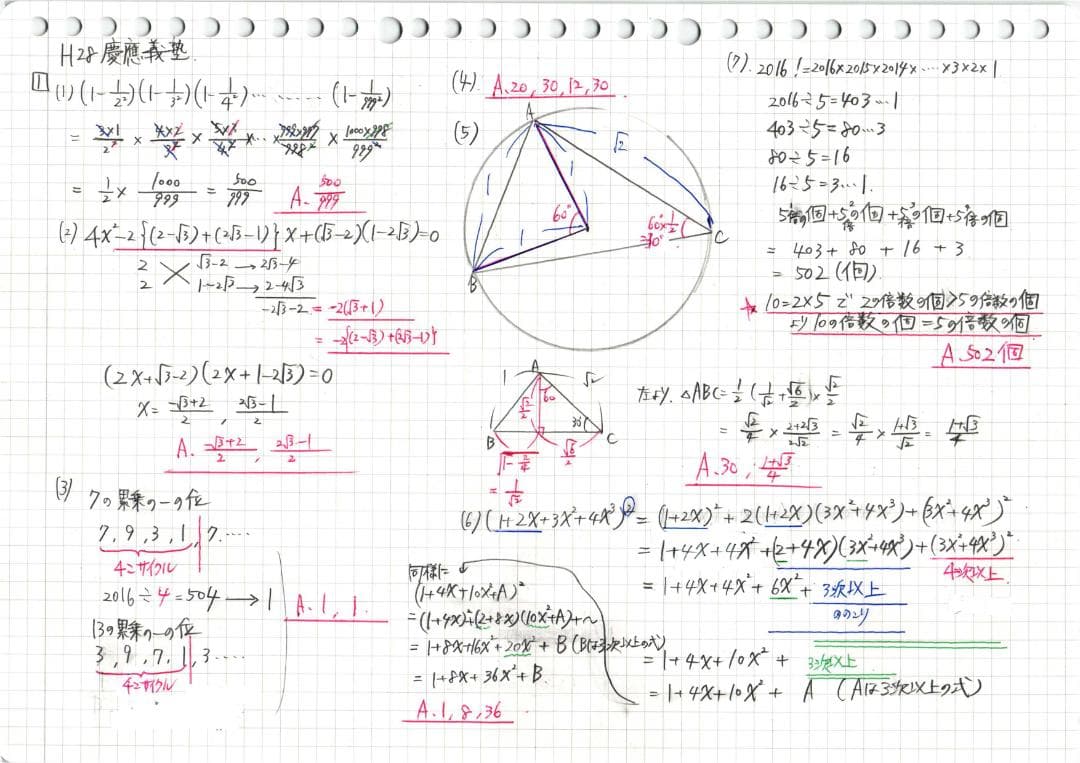 H28 慶應義塾.
1
(1) (1-1/2²)(1-1/3²)(1-1/4²)‥‥‥‥(1-1/999²)
= 3×1/2² × 4×2/3² × 5×3/4² ×‥× 999×997/998² × 1000×998/999²
= 1/2 × 1000/999 = 500/999
A. 500/999
(2) 4x²-2{(2-√3)+(2√3-1)}x+(√3-2)(1-2√3)=0
2 √3-2 → 2√3-4
2 1-2√3 → 2-4√3
-2√3-2 = -2(√3+1)
= -2{(2-√3)+(2√3-1)}
(2x+√3-2)(2x+1-2√3)=0
x= -√3+2/2 , 2√3-1/2
A. -√3+2/2 , 2√3-1/2
(3) 7の累乗の一の位
7, 9, 3, 1, 7.‥‥
4こサイクル
2016÷4=504 → 1
13の累乗の一の位
3, 9, 7, 1, 3‥‥
4こサイクル
A. 1, 1.
(4). A.20, 30, 12, 30
(5)
A
√2
1
1
1
60°
60×1/2
=30°
B
C
A
1
√2
√2/2
60
30°
B
C
√1-2/4
√6/2
= 1/√2
左より. △ABC= 1/2 (1/√2 + √6/2)× √2/2
= √2/4 × 2+2√3/2√2 = √2/4 × 1+√3/√2 = 1+√3/4
A.30, 1+√3/4
(6) (1+2x+3x²+4x³)² = (1+2x)²+2(1+2x)(3x²+4x³)+(3x²+4x³)²
= 1+4x+4x²+(2+4x)(3x²+4x³)+(3x²+4x³)²
4次以上
= 1+4x+4x²+6x²+ 3次以上
ののこり
= 1+4x+10x² + 3次以上
= 1+4x+10x² + A (Aは3次以上の式)
同様に
(1+4x+10x²+A)²
=(1+4x)²+(2+8x)(10x²+A)+~
= 1+8x+16x²+20x²+B (Bは3次以上の式)
= 1+8x+36x²+B.
A.1, 8, 36
(7). 2016!=2016×2015×2014×‥‥×3×2×1
2016÷5=403…1
403÷5=80…3
80÷5=16
16÷5=3…1.
5倍の個+5²倍の個+5³倍の個+5⁴倍の個
= 403+ 80 + 16 + 3
= 502(個).
★ 10=2×5 で 2の倍数の個>5の倍数の個
より10の倍数の個=5の倍数の個
A.502個